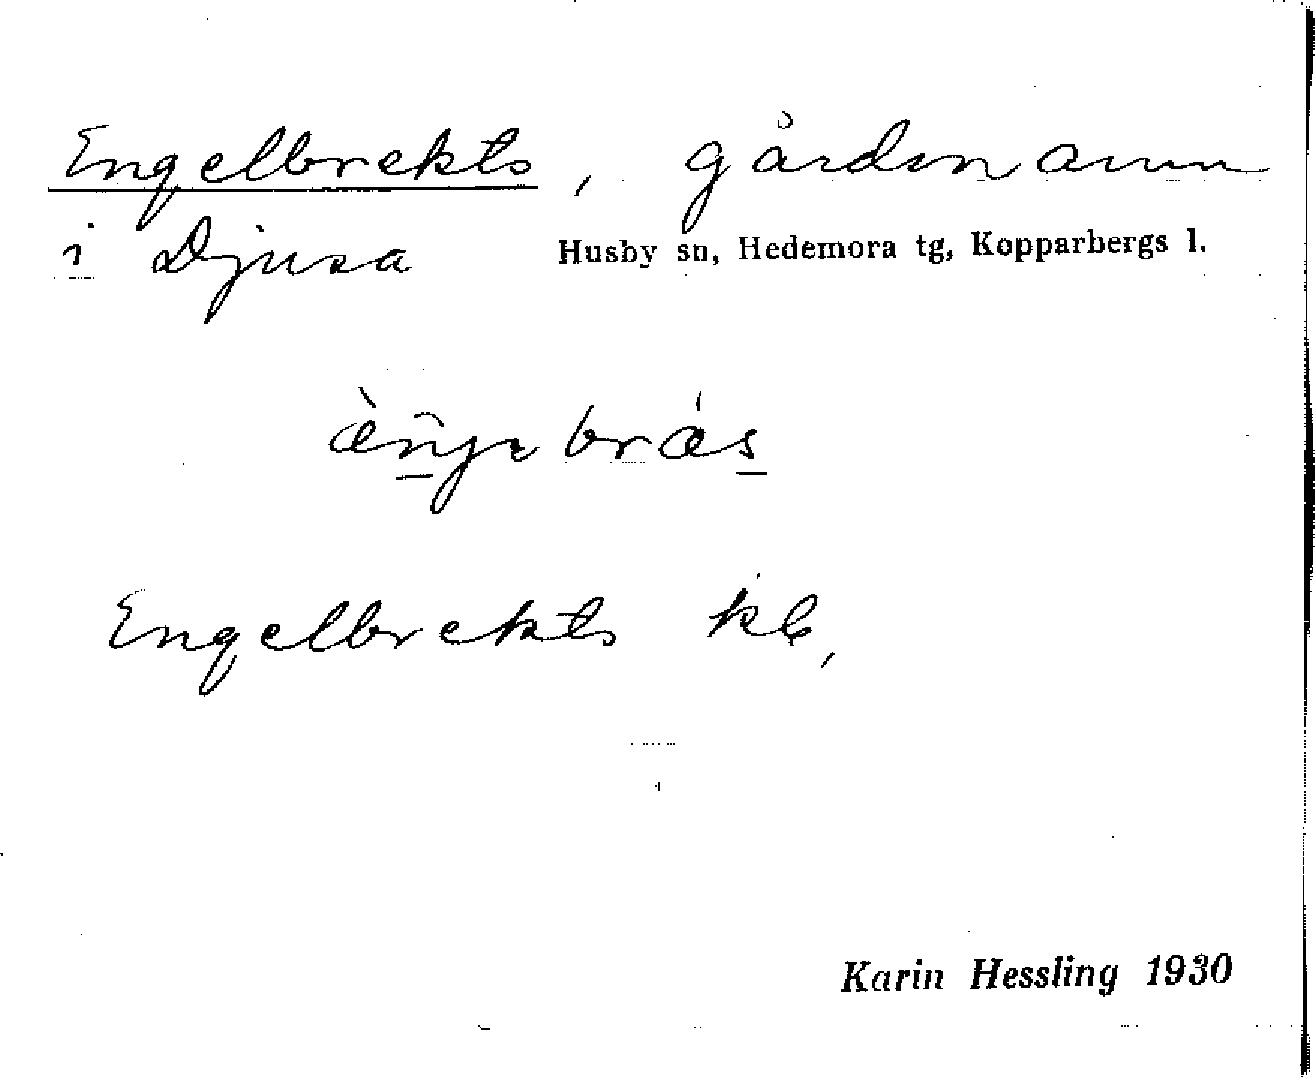 Engelbrekts, gårdsnamn
i Djusa Husby sn, Hedemora tg, Kopparbergs l.
Engelbrekts kb,
Karin Hessling 1930